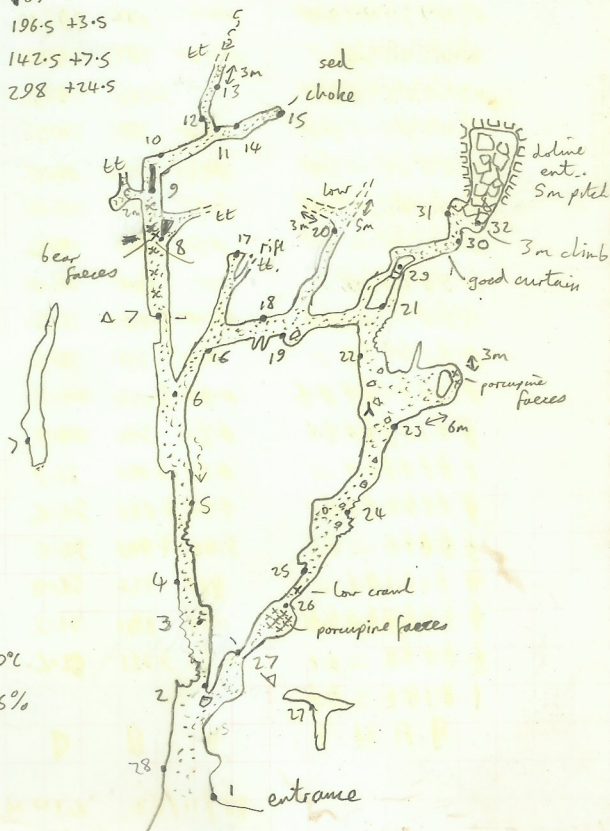 196.5 +3.5
142.5 +7.5
298 +24.5
tt
3m
13
sed
choke
12
15
11 14
10
tt
9
2m
tt
8
bear
faeces
low
3m
20
5m
doline
ent.
5m pitch
31
32
30
3m climb
good curtain
17 rift
tt.
29
21
△ 7
18
16
19
22
3m
porcupine
faeces
6
23
6m
5
24
25
4
low crawl
26
3
porcupine faeces
27
△
2
27
28
1
entrance
0°C
5%